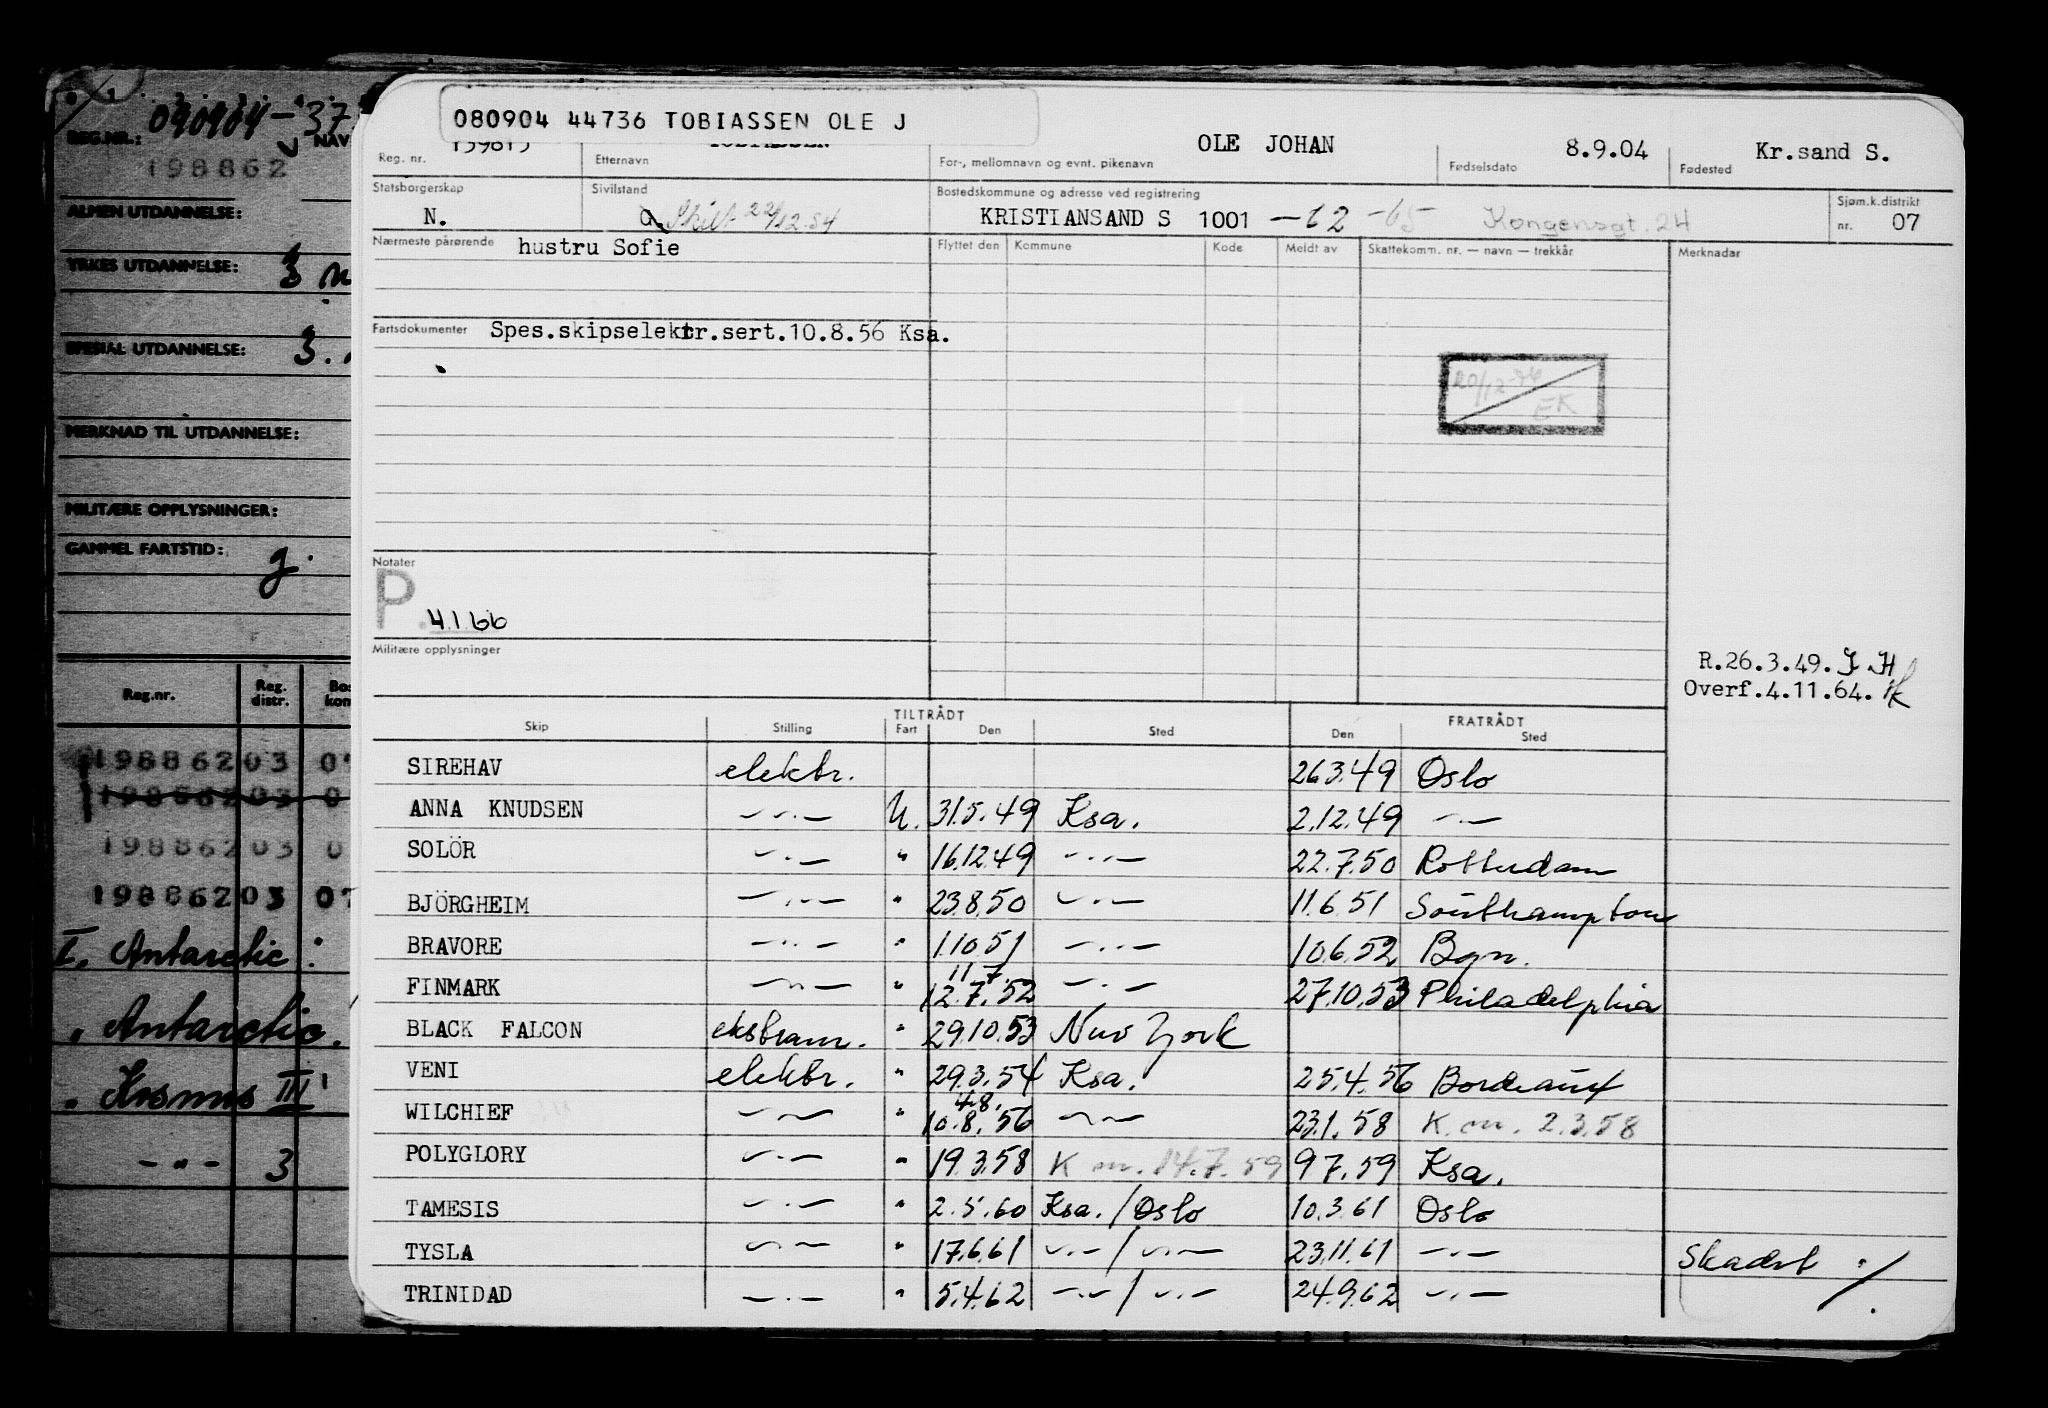 REG.NR.: 090904-37
NAV
198862
ALMEN UTDANNELSE:
YRKES UTDANNELSE: 3
SPESIAL UTDANNELSE: 3.
MERKNAD TIL UTDANNELSE:
MILITÆRE OPPLYSNINGER:
GAMMEL FARTSTID: g.
Reg.nr. Reg. distr. Bos kom
198862 03 07
198862 03 0
198862 03 0
198862 03 07
I. Antarctic :
" Antarctic.
" Kosmos III
-"- 3
080904 44736 TOBIASSEN OLE J
Reg. nr. 139815 Etternavn TOBIASSEN For-, mellomnavn og evnt. pikenavn OLE JOHAN Fødselsdato 8.9.04 Fødested Kr.sand S.
Statsborgerskap Sivilstand Bostedskommune og adresse ved registrering Sjøm.k.distrikt
N. G Skilt 22/12.54 KRISTIANSAND S 1001 -62 -65 Kongensgt. 24 nr. 07
Nærmeste pårørende hustru Sofie Flyttet den Kommune Kode Meldt av Skattekomm. nr. — navn — trekkår Merknadar
Fartsdokumenter Spes.skipselektr.sert.10.8.56 Ksa.
20/12-76
EK
Notater
P. 4.1.66
Militære opplysninger
R.26.3.49.
Overf.4.11.64.
TILTRÅDT FRATRÅDT
Skip Stilling Fart Den Sted Den Sted
SIREHAV elektr. 26.3.49 Oslo
ANNA KNUDSEN -"- U. 31.5.49 Ksa. 2.12.49 -"-
SOLÖR -"- " 16.12.49 -"- 22.7.50 Rotterdam
BJÖRGHEIM -"- " 23.8.50 -"- 11.6.51 Southampton
BRAVORE -"- " 1.10.51 -"- 10.6.52 Bgn.
11.7.
FINMARK -"- " 12.7.52 -"- 27.10.53 Philadelphia
BLACK FALCON ekstram. " 29.10.53 New York
VENI elektr. " 29.3.54 Ksa. 25.4.56 Bordeaux
4.8.
WILCHIEF -"- " 10.8.56 -"- 23.1.58 K.m. 2.3.58
POLYGLORY -"- " 19.3.58 K m. 14.7.59 9.7.59 Ksa.
TAMESIS -"- " 2.5.60 Ksa./Oslo 10.3.61 Oslo
TYSLA -"- " 17.6.61 -"-/-"- 23.11.61 -"- Skadet
TRINIDAD -"- " 5.4.62 -"-/-"- 24.9.62 -"-